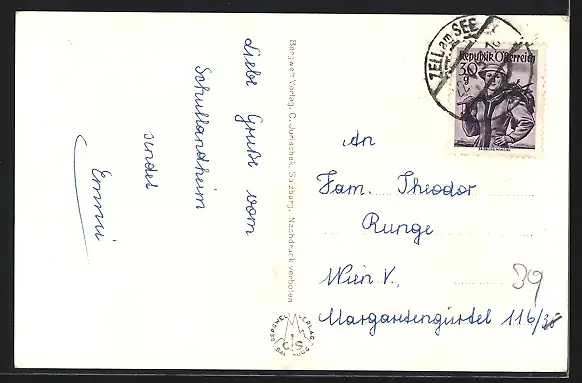 Liebe Grüße vom
Schullandheim
sendet
Emmi
Bergwelt Verlag, C. Jurischek, Salzburg. Nachdruck verboten
BERGWELT VERLAG
CJS
ZELL am SEE
Republik Österreich
30 g
An
Fam. Theodor
Runge
Wien V.,
39
Margaretengürtel 116/